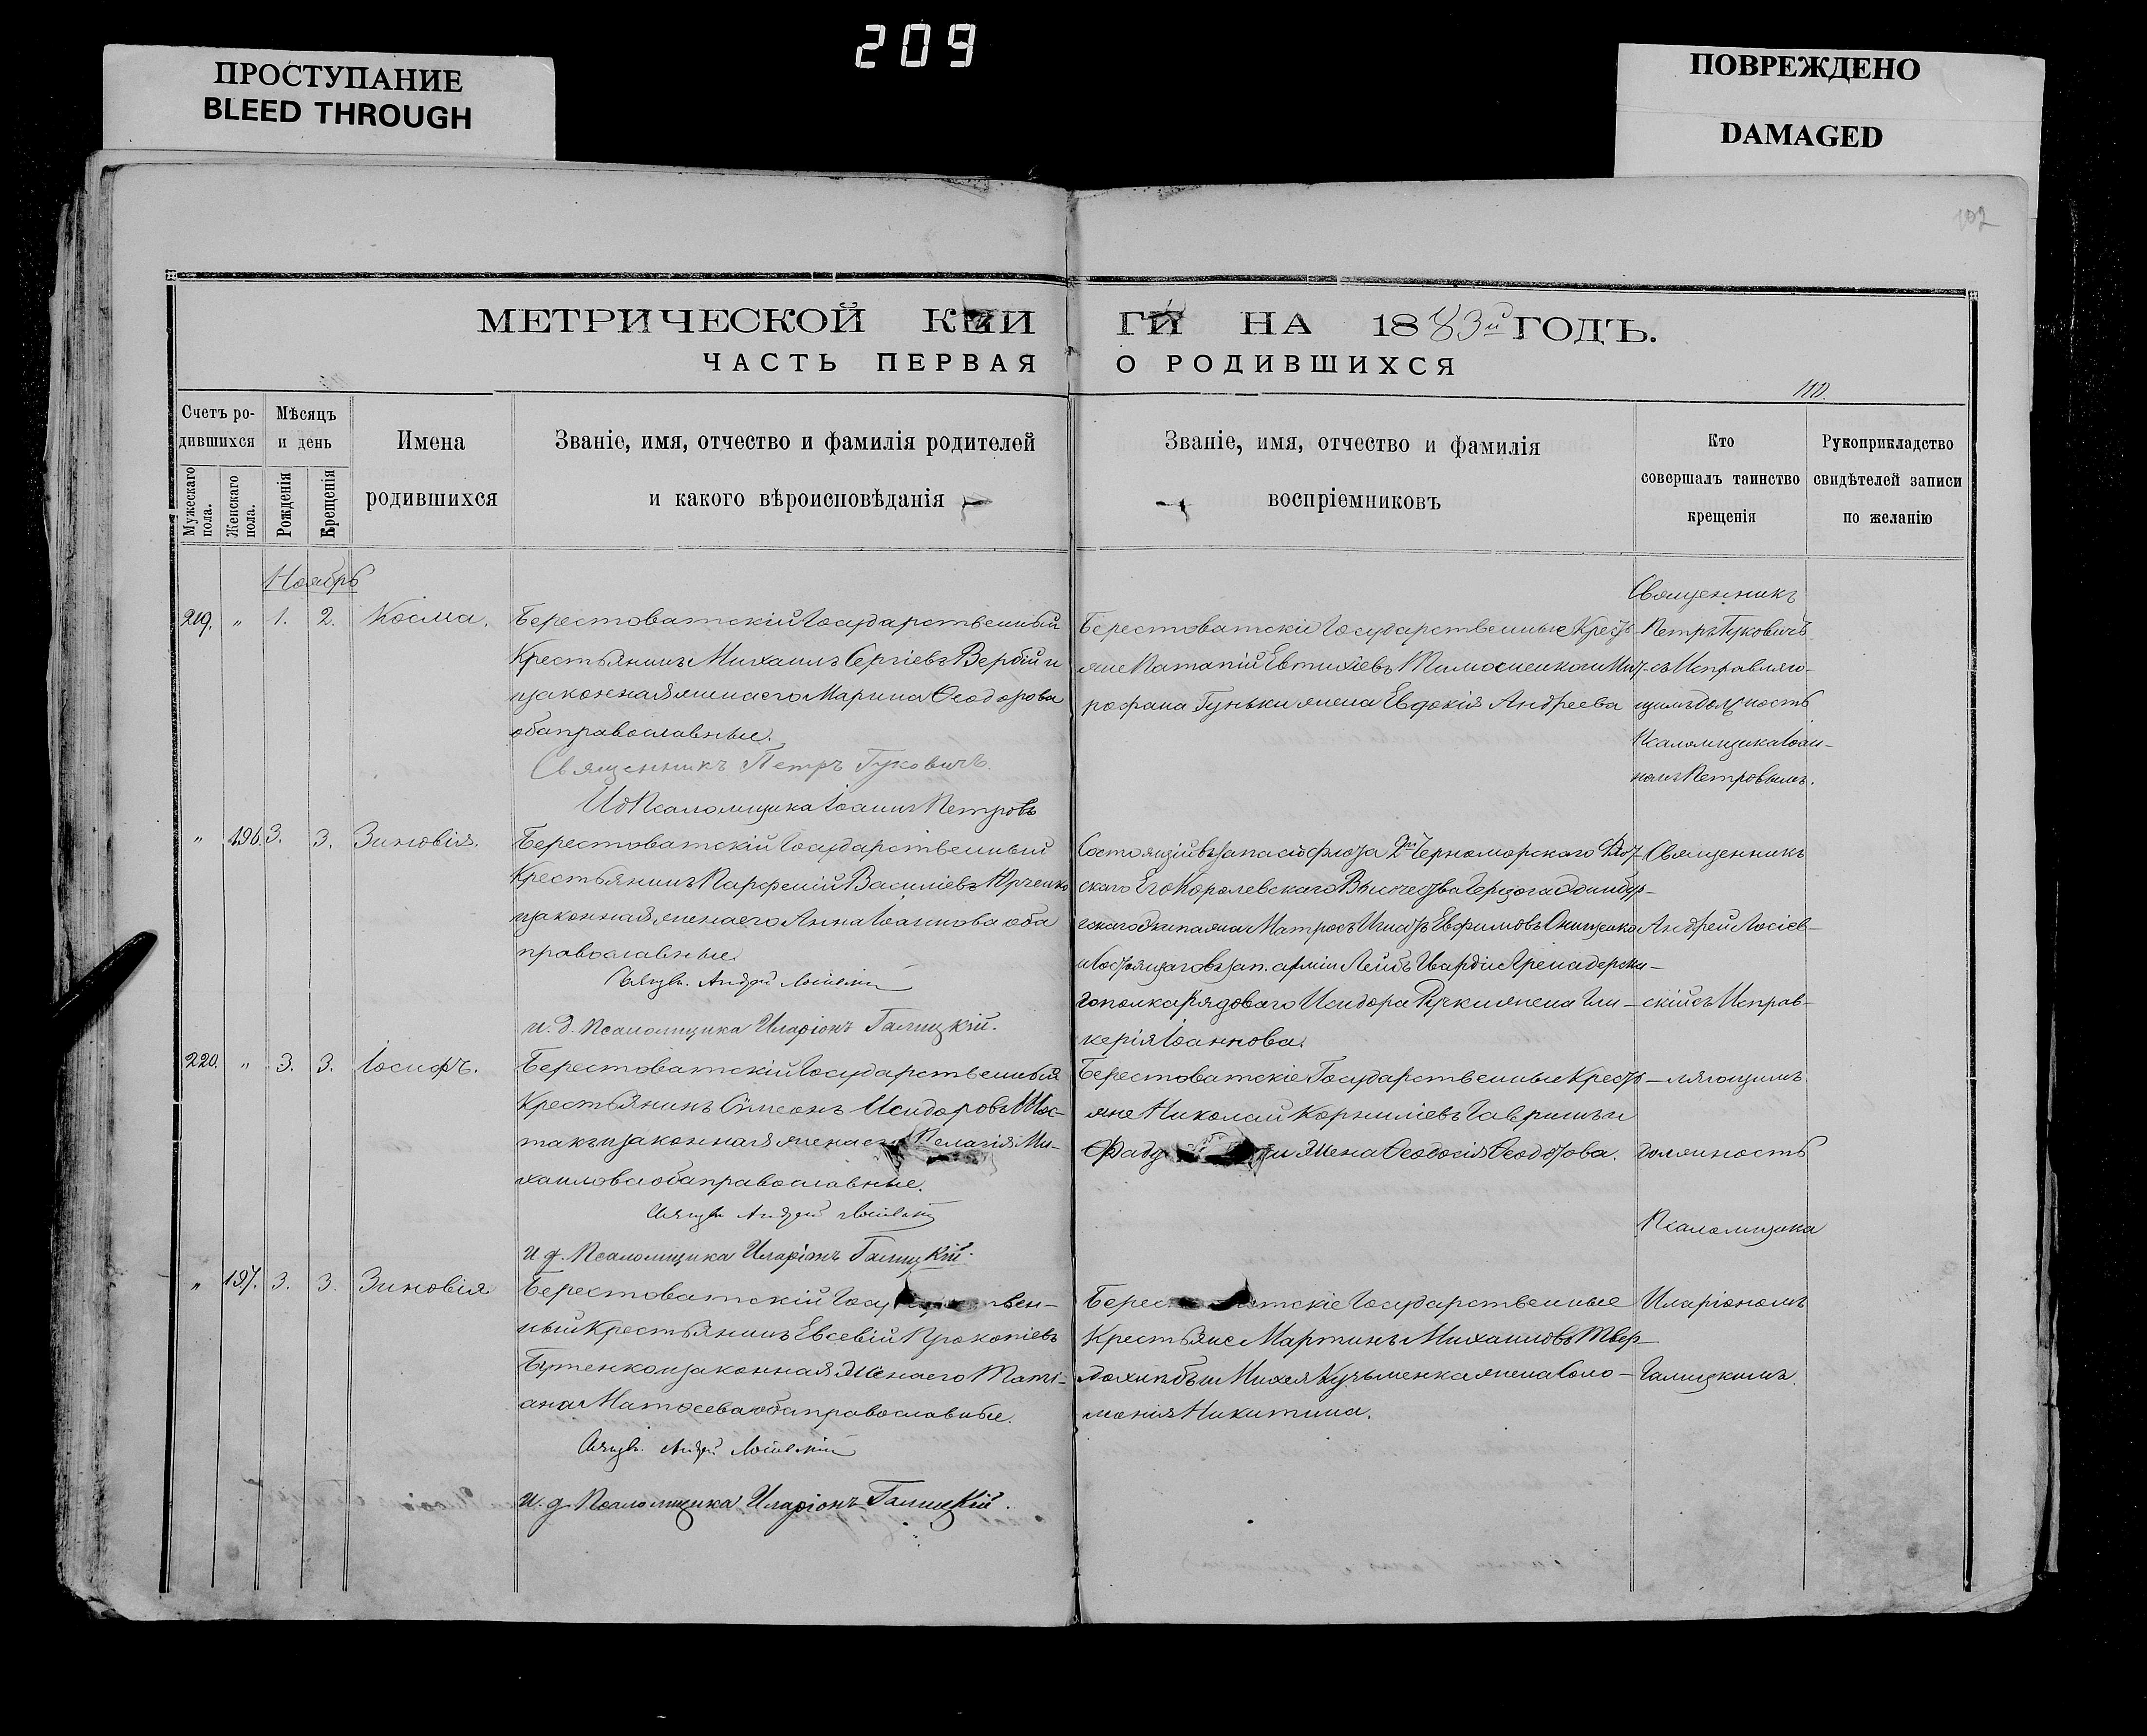 209
ПРОСТУПАНИЕ
BLEED THROUGH
ПОВРЕЖДЕНО
DAMAGED
102
МЕТРИЧЕСКОЙ КНИГИ НА 1883й ГОДЪ.
ЧАСТЬ ПЕРВАЯ О РОДИВШИХСЯ
110.
Счетъ родившихся
Мужескаго пола.
Женскаго пола.
Мѣсяцъ и день
Рожденія
Крещенія
Имена родившихся
Званіе, имя, отчество и фамилія родителей
и какого вѣроисповѣданія
Званіе, имя, отчество и фамилія
воспріемниковъ
Кто
совершалъ таинство
крещенія
Рукоприкладство
свидѣтелей записи
по желанію
Ноябрь
219. " 1. 2. Косма.
Берестоватскій Государственный
Крестьянинъ Михаилъ Сергіевъ Вербій и
законная жена его Марина Ѳеодорова
оба православные.
Священникъ Петръ Гуковичъ.
Ид Псаломщика Іоаннъ Петровъ
Берестоватскіе Государственные Кресть-
яне Патапій Евтихіевъ и Мит-
рофана Гуньки жена Евдокія Андреева
Священникъ
Петръ Гуковичъ
съ Исправляю-
щимъ должность
Псаломщика Іоан-
номъ Петровымъ.
" 196. 3. 3. Зиновія.
Берестоватскій Государственный
Крестьянинъ Парфеній Василіевъ Юрченко
и законная жена его Анна Іоаннова оба
православные.
Священ. Андрей Лосіевскій
и. д. Псаломщика Иларіонъ Галицкій.
Состоящій въ запасѣ флота 2го Черноморскаго Флот-
скаго Его Королевскаго Высочества Герцога Эдинбур-
гскаго Экипажа Матросъ Игнатъ Евфимовъ Онищенко
и Состоящаго въ зап. арміи Лейбъ Гвардіи Гренадерска-
го полка рядоваго Исидора жена Гли-
керія Іоаннова.
Священникъ
Андрей Лосіев-
скій съ Исправ-
220. " 3. 3. Іосифъ.
Берестоватскій Государственный
Крестьянинъ Симеонъ Исидоровъ Шос-
такъ и законная жена его Пелагія Ми-
хаилова оба православные.
Священ Андрей Лосіевскій
и д. Псаломщика Иларіонъ Галицкій.
Берестоватскіе Государственные Кресть-
яне Николай Корниліевъ Гавришъ и
жена Ѳеодосія Ѳеодотова.
ляющимъ
должность
Псаломщика
" 197. 3. 3. Зиновія
Берестоватскій Государствен-
ный Крестьянинъ Евсевій Прокопіевъ
Бутенко и законная жена его Таті-
ана Матѳеева оба православные.
Священ. Андрей Лосіевскій
и. д. Псаломщика Иларіонъ Галицкій.
Берестоватскіе Государственные
Крестьяне Мартинъ Михаиловъ Твер-
дохлѣбъ и Михея Кузьменка жена Соло-
монія Никитина.
Иларіономъ
Галицкимъ.